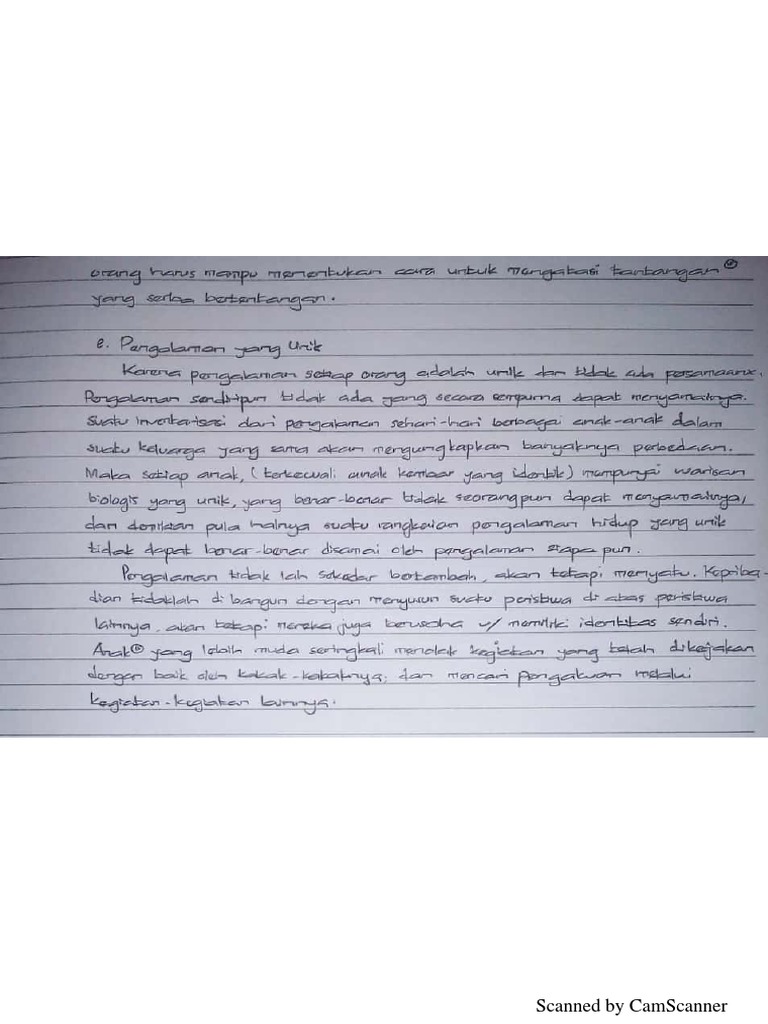 orang harus mampu menentukan cara untuk mengatasi tantangan②
yang serba bertentangan.
e. Pengalaman yang Unik
Karena pengalaman setiap orang adalah unik dan tidak ada persamaanx.
Pengalaman sendiripun tidak ada yang secara sempurna dapat menyamainya.
Suatu inventarisasi dari pengalaman sehari-hari berbagai anak-anak dalam
suatu keluarga yang sama akan mengungkapkan banyaknya perbedaan.
Maka setiap anak, (terkecuali anak kembar yang identik) mempunyai warisan
biologis yang unik, yang benar-benar tidak seorangpun dapat menyamainya,
dan demikian pula halnya suatu rangkaian pengalaman hidup yang unik
tidak dapat benar-benar disamai oleh pengalaman siapa pun.
Pengalaman tidak lah sekedar bertambah, akan tetapi menyatu. Kepriba-
dian tidaklah di bangun dengan menyusun suatu peristiwa di atas peristiwa
lainnya, akan tetapi mereka juga berusaha u/ memiliki identitas sendiri.
Anak② yang lebih muda seringkali menolak kegiatan yang telah dikerjakan
dengan baik oleh kakak-kakaknya; dan mencari pengakuan melalui
kegiatan-kegiatan lainnya.
Scanned by CamScanner